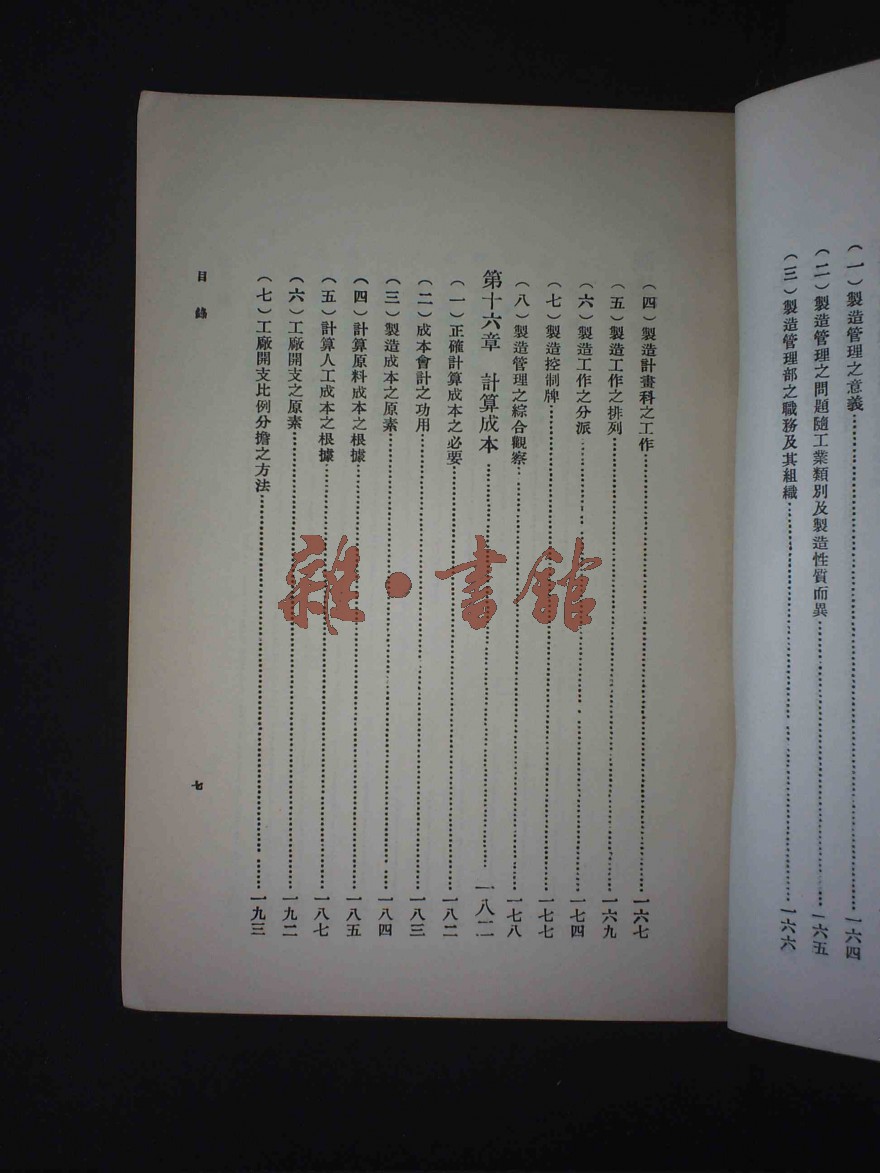 (一)製造管理之意義……一六四
(二)製造管理之問題隨工業類別及製造性質而異……一六五
(三)製造管理部之職務及其組織……一六六
(四)製造計畫科之工作……一六七
(五)製造工作之排列……一六九
(六)製造工作之分派……一七四
(七)製造控制牌……一七七
(八)製造管理之綜合觀察……一七八
第十六章 計算成本……一八二
(一)正確計算成本之必要……一八二
(二)成本會計之功用……一八三
(三)製造成本之原素……一八四
(四)計算原料成本之根據……一八五
(五)計算人工成本之根據……一八七
(六)工廠開支之原素……一九二
(七)工廠開支比例分擔之方法……一九三
目錄
七
雜·書館